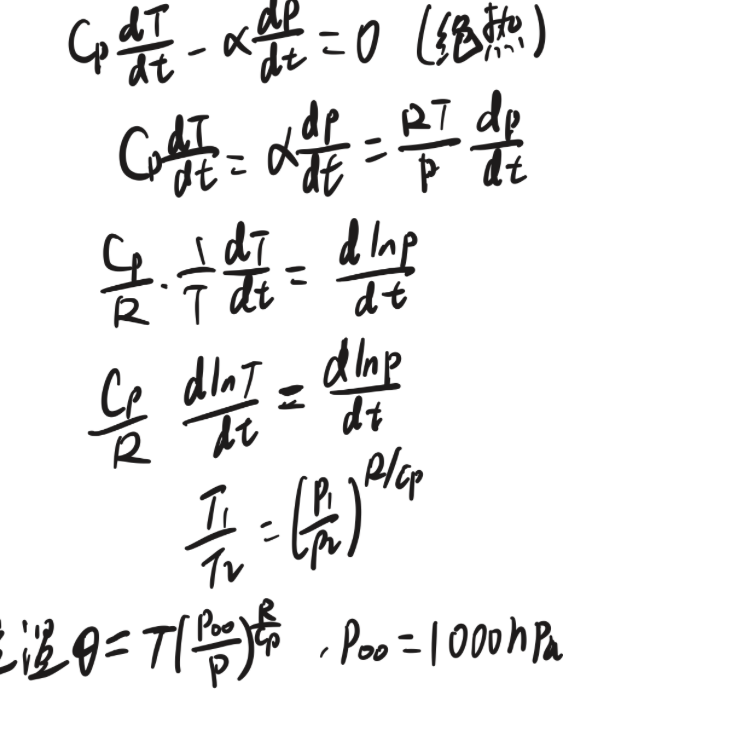 Cp dT/dt - α dp/dt = 0 (绝热)
Cp dT/dt = α dp/dt = RT/p dp/dt
Cp/R · 1/T dT/dt = d ln p/dt
Cp/R d ln T/dt = d ln p/dt
T₁/T₂ = (p₁/p₂)^(R/cp)
温 θ = T(p₀₀/p)^(R/cp) , p₀₀ = 1000hPa